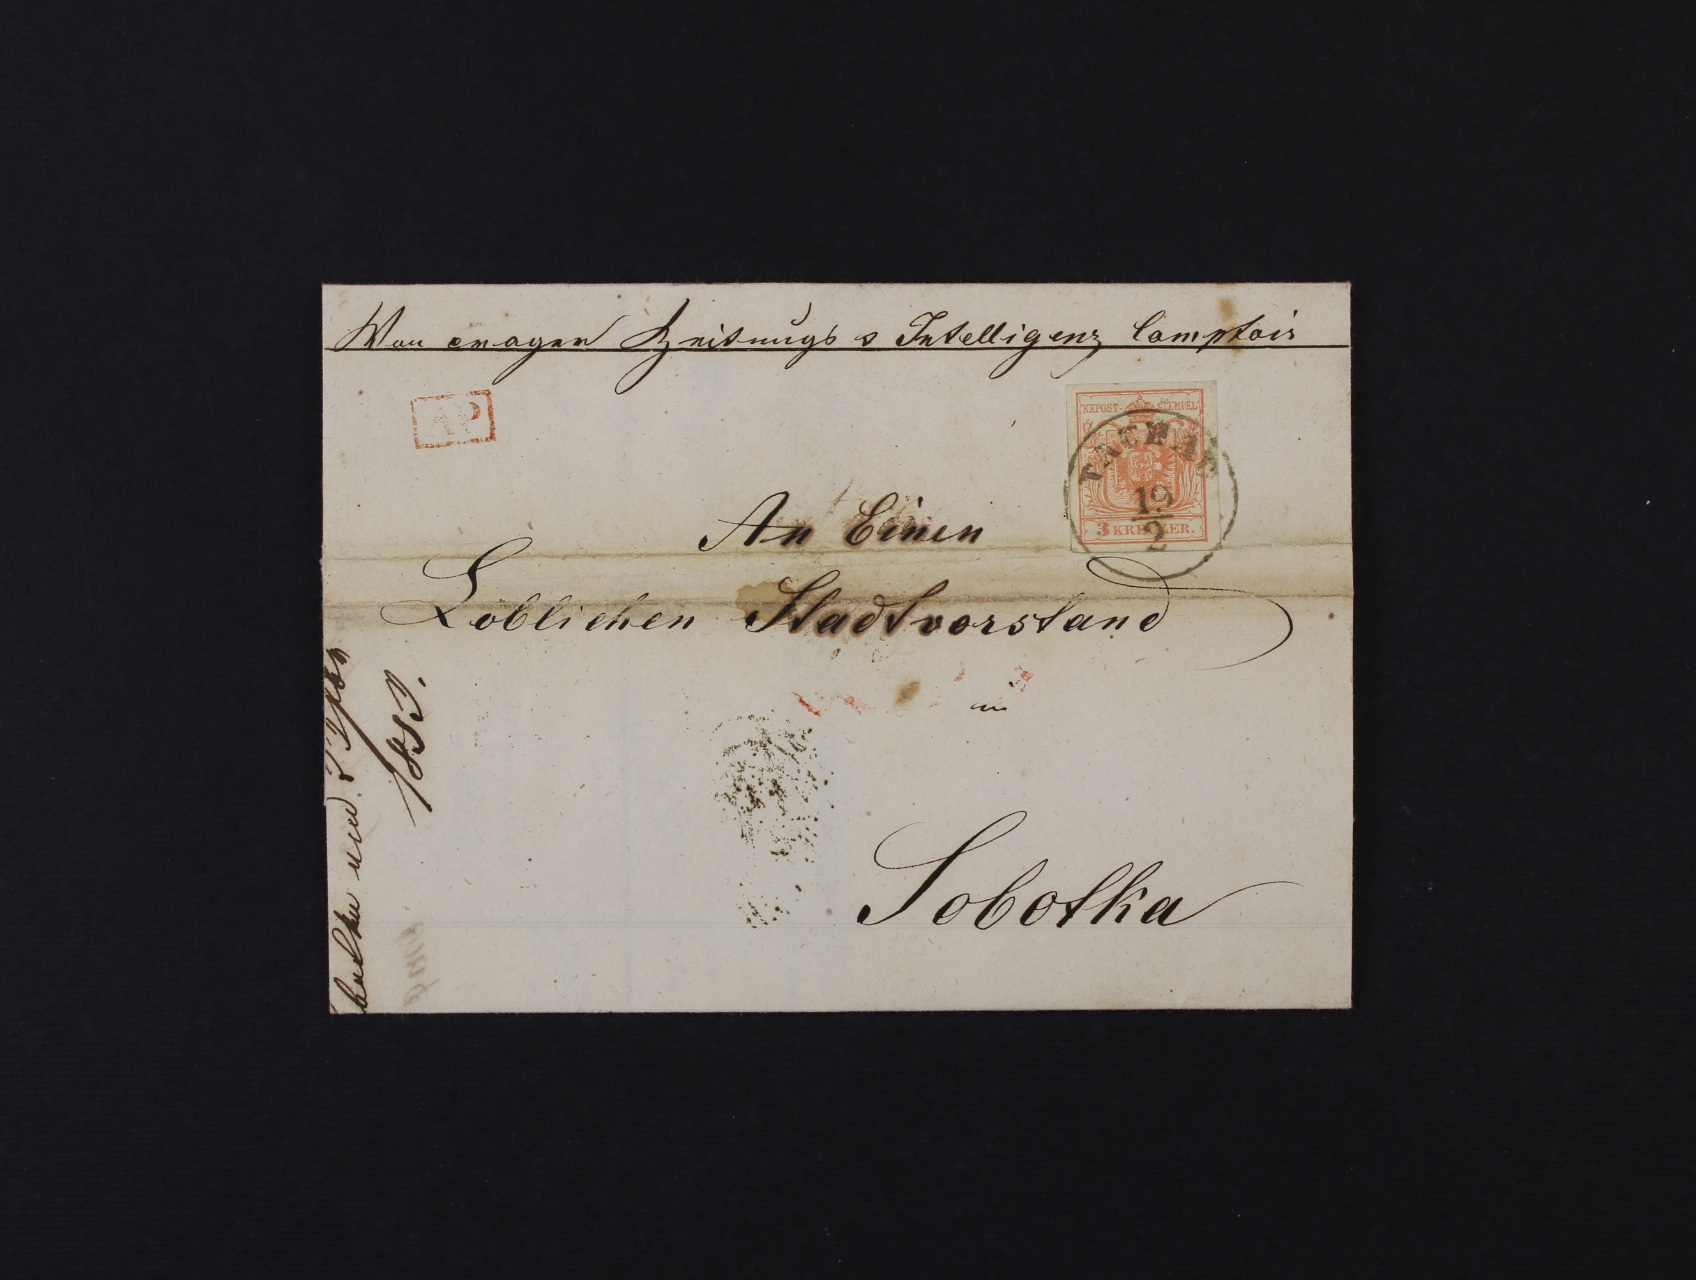 Von Prager Zeitungs & Intelligenz Comptoir
AP
KKPOST-STEMPEL
3 KREUZER.
19
2
An Einen
Löblichen Stadtvorstand
in
Sobotka
1853.